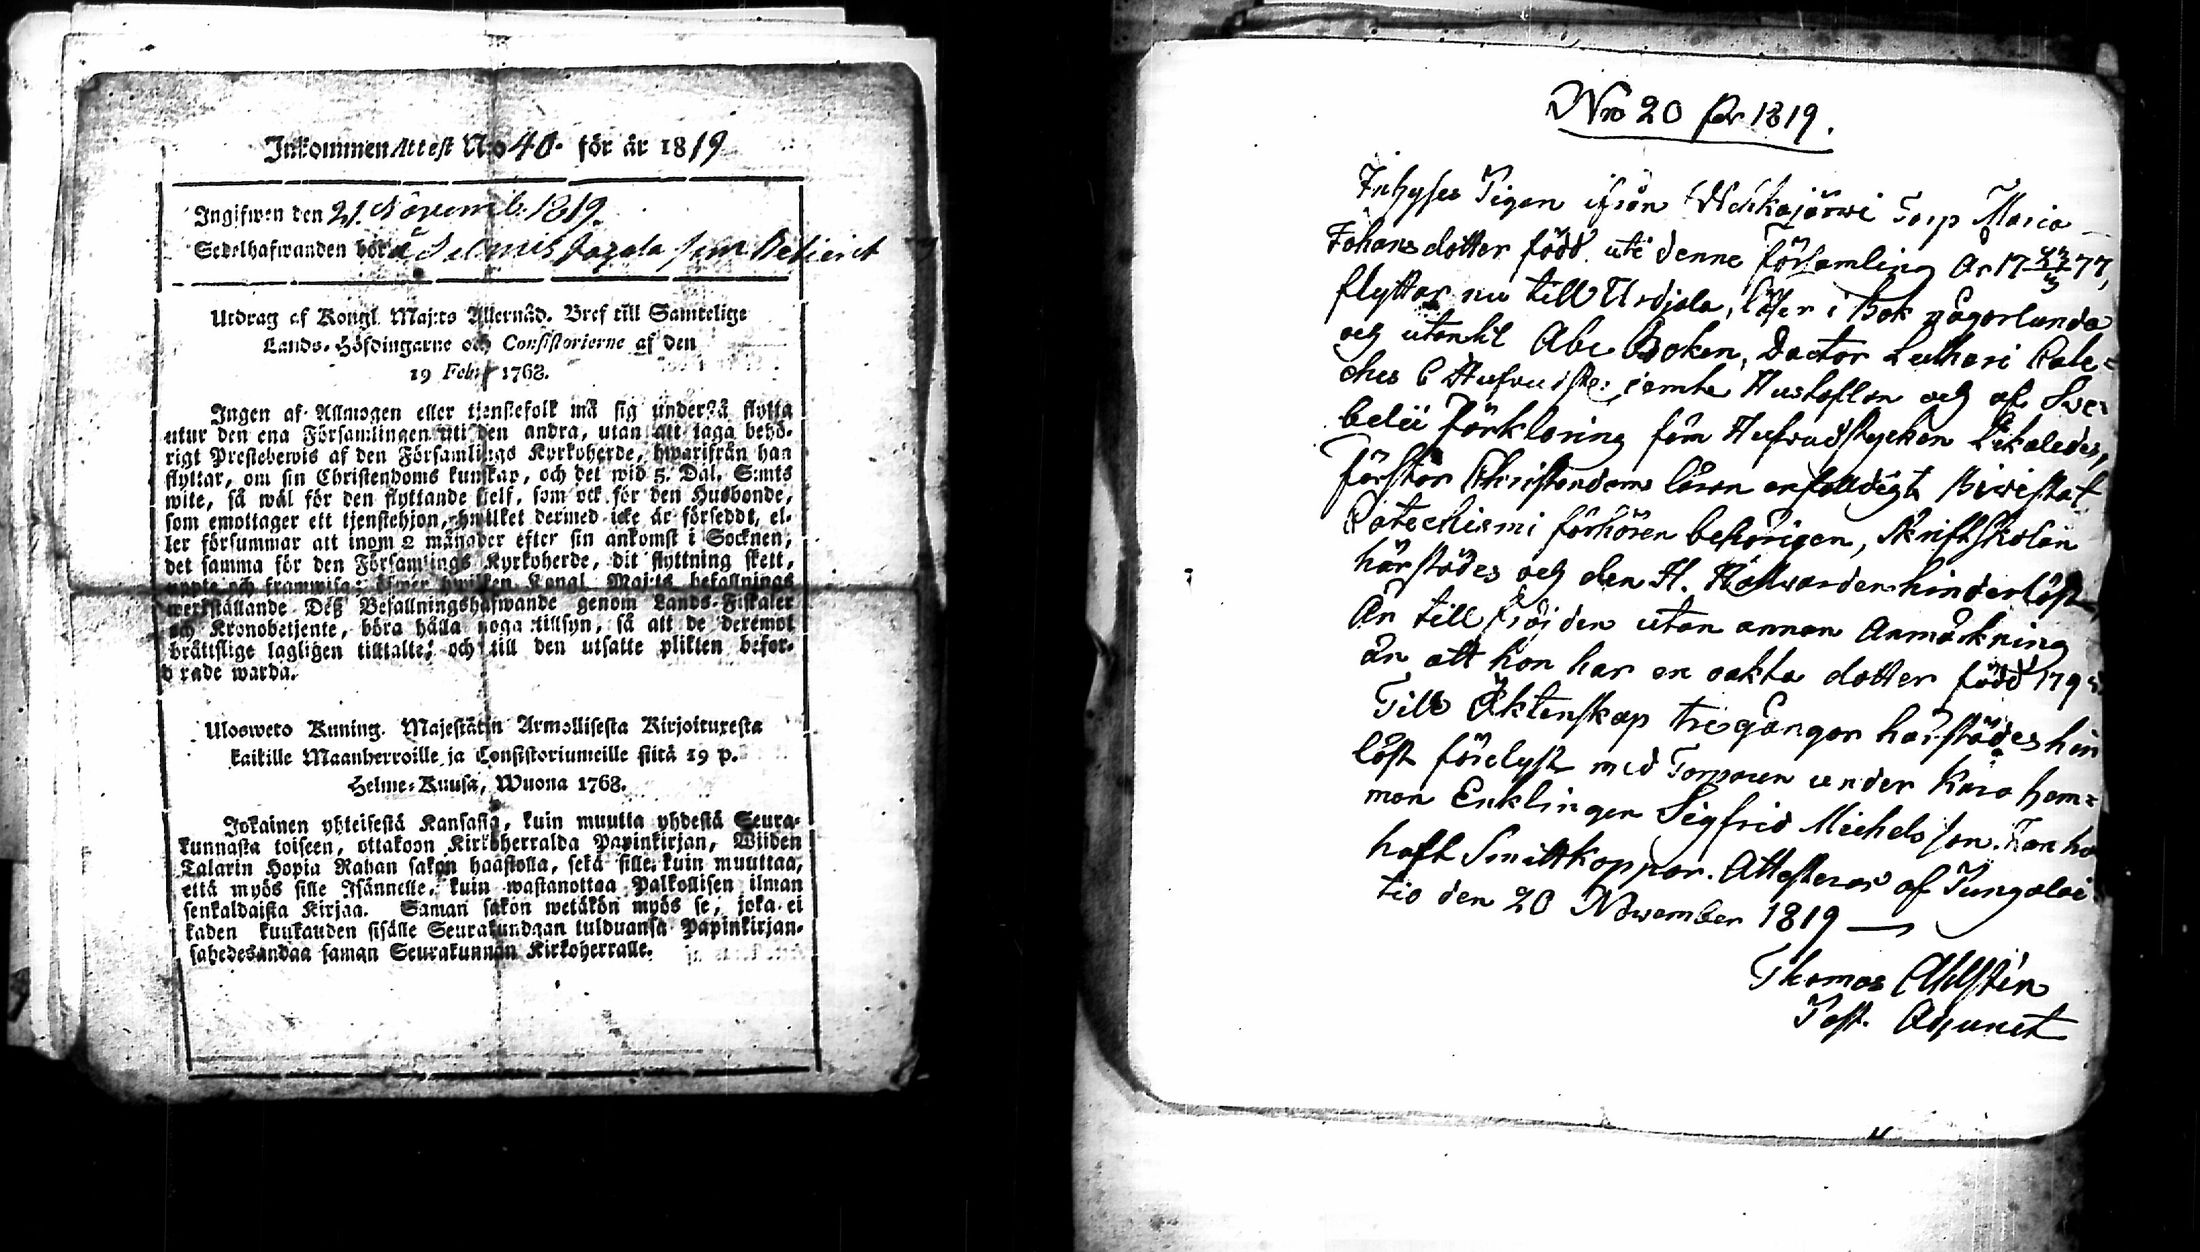 Inkommen Attest No 40. för år 1819
Ingifwen den 21 Novemb. 1819.
Sedelhafwanden bör å Jazala som Betient
Utdrag af Kongl. Maj:ts Allernåd. Bref till Samtelige
Lands-Höfdingarne och Consistorierne af den
19 Febr. 1768.
Ingen af Allmogen eller tjenstefolk må sig understå flytta
utur den ena Församlingen uti den andra, utan att taga behö-
rigt Prestebewis af den Församlings Kyrkoherde, hwarifrån han
flyttar, om sin Christendoms kunskap, och det wid 5. Dal. S:mts
wite, så wäl för den flyttande sielf, som ock för den Husbonde,
som emottager ett tjenstehjon, hwilket dermed icke är försedt, el-
ler försummar att inom 2 månader efter sin ankomst i Socknen,
det samma för den Församlings Kyrkoherde, dit flyttning skett,
uppte och framwisa; öfwer hwilken Kongl. Maj:ts befallnings
werkställande Deß Befallningshafwande genom Lands-Fiskaler
och Kronobetjente, böra hålla noga tillsyn, så att de deremot
brättslige lagligen tilltalte, och till den utsatte plikten befor-
drade warda.
Ulosweto Kuning. Majestätin Armollisesta Kirjoituxesta
kaikille Maanherroille ja Consistoriumeille siitä 19 p.
Helme-Kuusa, Wuona 1768.
Jokainen yhteisestä Kansasta, kuin muutta yhdestä Seura-
kunnasta toiseen, ottakoon Kirkoherralda Papinkirjan, Wiiden
Talarin Hopia Rahan sakon haastolla, sekä sille kuin muuttaa,
että myös sille Isännelle, kuin wastanottaa Palkollisen ilman
senkaldaista Kirjaa. Saman sakon wetäkön myös se, joka ei
kaden kuukauden sisälle Seurakundaan tulduansa Papinkirjan-
sa edesandaa saman Seurakunnan Kirkoherralle.
Nro 20 för 1819.
Inhyses Pigan ifrån Torp Maria
Johansdotter född uti denne församling År 17 77,
flyttar nu till Urdjala, läser i Bok någorlunda
och utantil Abc Boken, Doctor Lutheri Cate-
ches 6 Hufwudst: jemte Hustaflan och af Swe-
belii förklaring fem Hufwudstycken Likaledes,
förstår Christendoms läran enfalldigt Biwistat
Catechismi förhören behörigen, Skriftskolan
härstädes och den H. Nattwarden hinderlöst
Är till frejden utan annan Anmärkning
än att hon har en oäkta dotter född 179
Till Äktenskap tregångor härstädes hin
löst förelyst med Torparen under hem-
man Enklingen Sigfrid Michelsson. Hon ha
haft Smittkoppor. Attesterar af Pungalai
tio den 20 November 1819
Thomas Ahlstén
Past. Adjunct